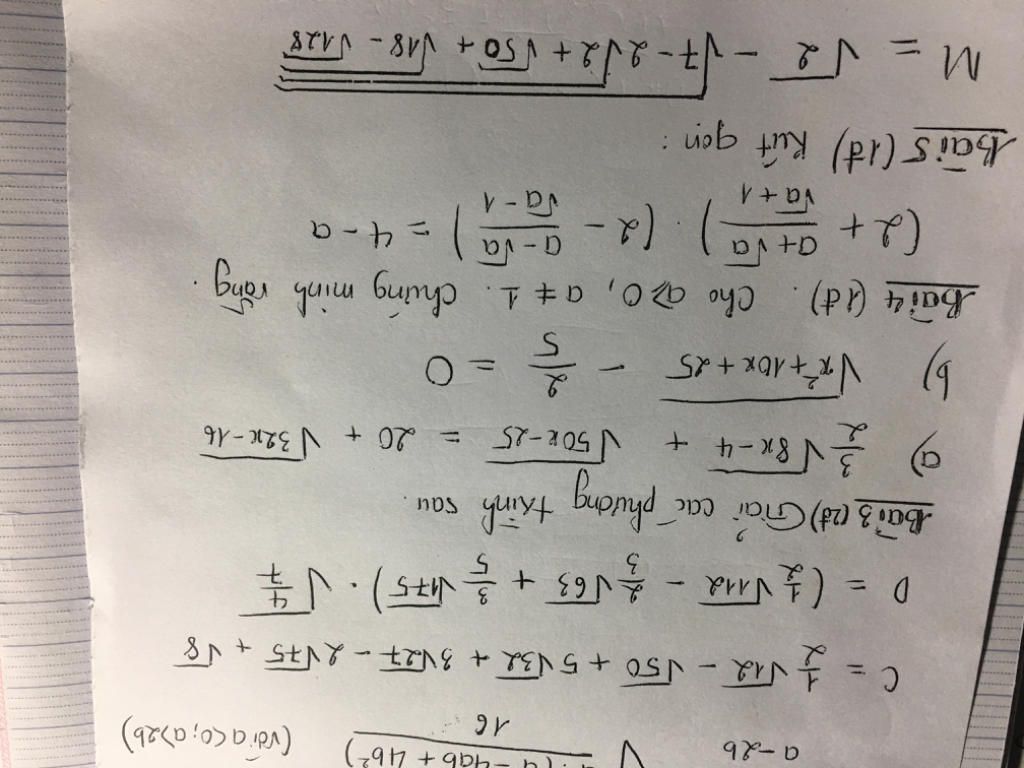 a-2b √ (a-4ab+4b²) / 16 (với a<0; a>2b)
C = 1/2 √12 - √50 + 5√32 + 3√27 - 2√75 + √8
D = (1/2 √112 - 2/3 √63 + 3/5 √175) . √4/7
Bài 3 (2đ) Giải các phương trình sau.
a) 3/2 √8x-4 + √50x-25 = 20 + √32x-16
b) √x²+10x+25 - 2/5 = 0
Bài 4 (1đ). Cho a≥0, a≠1. Chứng minh rằng.
(2 + (a+√a)/(√a+1)) . (2 - (a-√a)/(√a-1)) = 4-a
Bài 5 (1đ) Rút gọn :
M = √2 - √7-2√2+√50+√18-√128